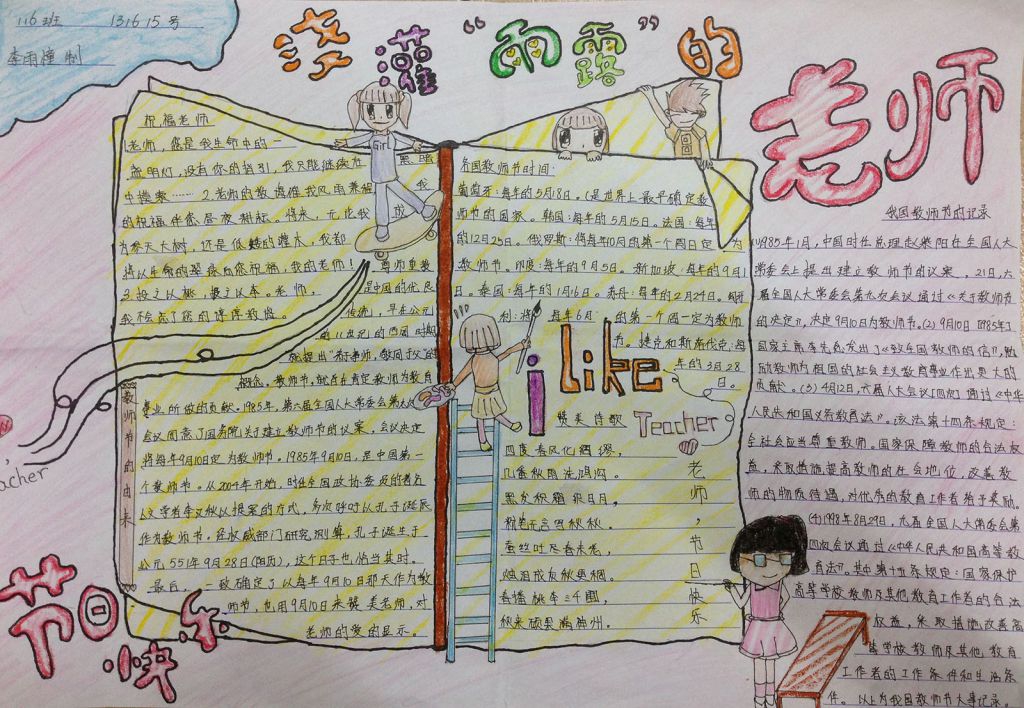 116班 131615号
李雨憧 制
浇灌“雨露”的
老师
祝福老师
1.老师，您是我生命中的一
盏明灯，没有你的指引，我只能继续在黑暗
中摸索……2.老师的教诲伴我风雨兼程，我
的祝福伴您昼夜耕耘。将来，无论我成
为参天大树，还是低矮的灌木，我都
将以生命的翠绿向您祝福，我的老师！
3.投之以桃，报之以李。老师，
我不会忘了您的谆谆教诲。
教师节的由来
尊师重教
是中国的优良
传统，早在公元
前11世纪的西周时期
就提出“弟子事师，敬同于父”的
概念。教师节，就旨在肯定教师为教育
事业所做的贡献。1985年，第六届全国人大常委会第九次
会议同意了国务院关于建立教师节的议案，会议决定
将每年9月10日定为教师节。1985年9月10日，是中国第一
个教师节。从2004年开始，时任全国政协委员的著名
人文学者李汉秋以提案的方式，多次呼吁以孔子诞辰
作为教师节。经权威部门研究测算，孔子诞生于
公元551年9月28日(阳历)，这个月子也恰当其时。
最后，一致确定了以每年9月10日那天作为教
师节，也用9月10日来赞美老师，对
老师的爱的显示。
各国教师节时间：
葡萄牙：每年的5月18日。(是世界上最早确定教
师节的国家。韩国：每年的5月15日。法国：每年
的12月25日。俄罗斯：将每年10月的第一个周日定为
教师节。印度：每年的9月5日。新加坡：每年的9月1
日。泰国：每年的1月16日。苏丹：每年的2月24日。匈牙
利：将每年6月的第一个周一定为教师
节。捷克和斯洛伐克：每
年的3月28
日。
i like
Teacher
赞美诗歌
四度春风化绸缪，
几番秋雨洗鸿沟。
黑发积霜织日月，
粉笔无言写春秋。
蚕丝吐尽春未老，
烛泪成灰秋更稠。
春播桃李三千圃，
秋来硕果满神州。
老师，节日快乐
我国教师节的记录
(1)1985年1月，中国时任总理赵紫阳在全国人大
常委会上提出建立教师节的议案，21日，六
届全国人大常委会第九次会议通过《关于教师节
的决定》，决定9月10日为教师节。(2)9月10日(1985年)
国家主席李先念发出了《致全国教师的信》，勉
励教师为祖国的社会主义教育事业作出更大的
贡献。(3)4月12日，六届人大会议[四次]通过《中华
人民共和国义务教育法》。该法第十四条规定：
全社会应当尊重教师。国家保障教师的合法权
益，采取措施提高教师的社会地位，改善教
师的物质待遇，对优秀的教育工作者给予奖励。
(4)1998年8月29日，九届全国人大常委会第
四次会议通过《中华人民共和国高等教
育法》。其中第十五条规定：国家保护
高等学校教师及其他教育工作者的合法
权益，采取措施改善高
等学校教师及其他教育
工作者的工作条件和生活条
件。以上为我国教师节大事记录。
节日快乐
Girl